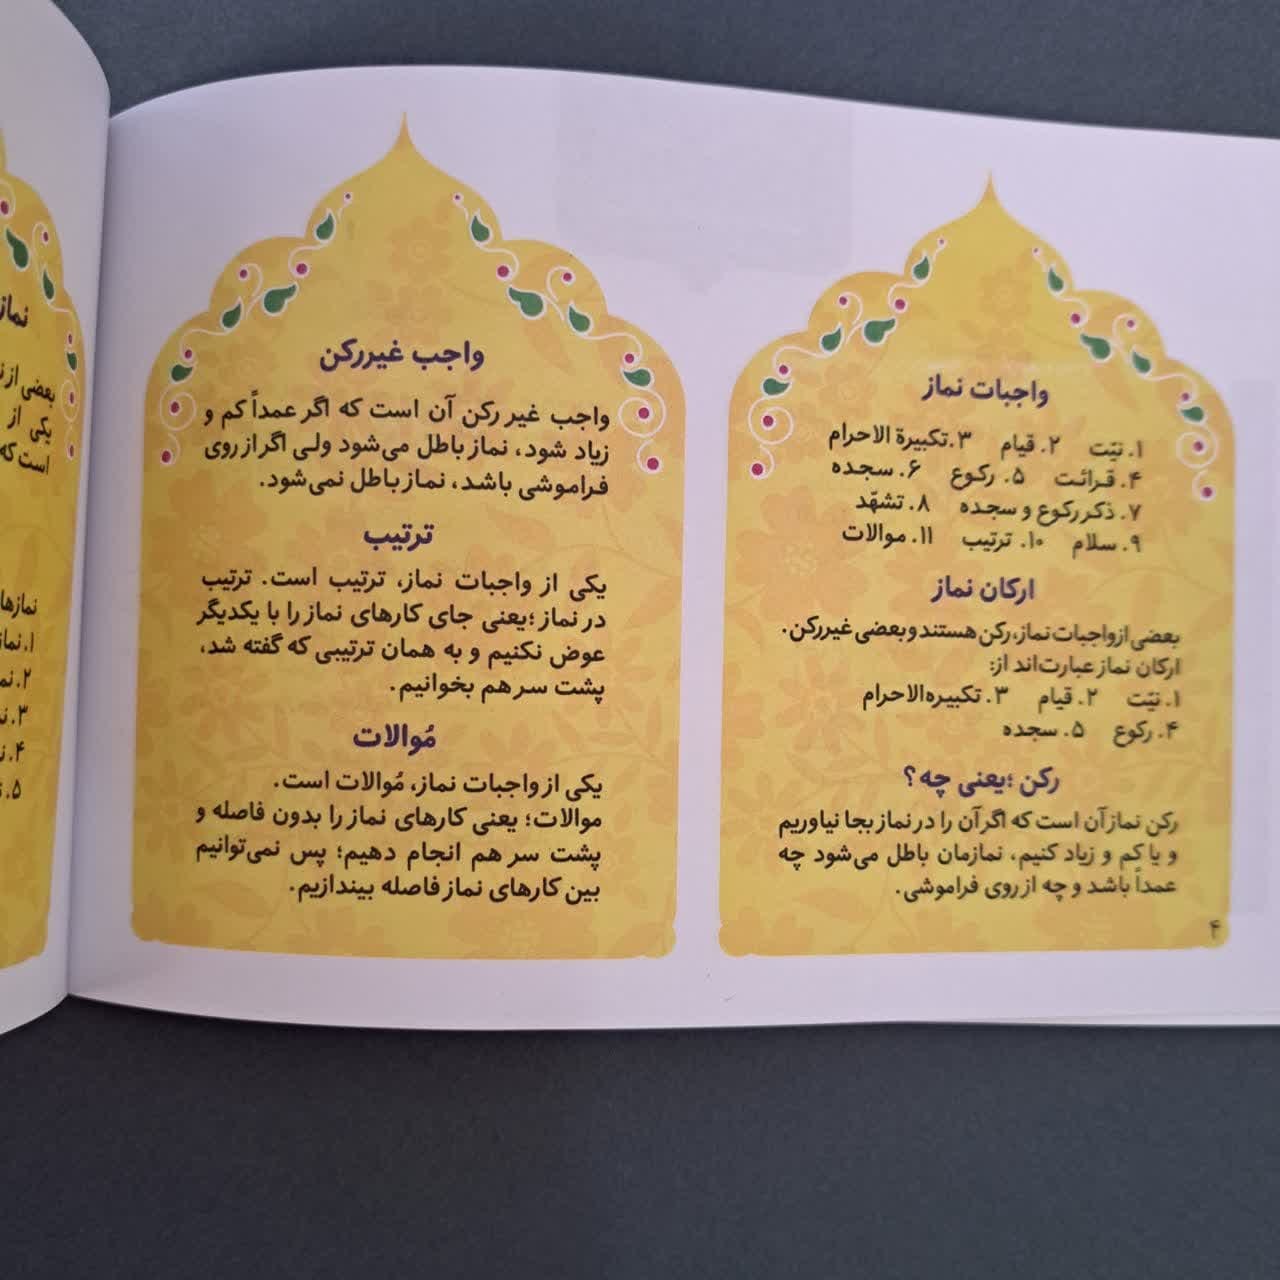 واجبات نماز
۱. نیّت ۲. قیام ۳. تکبیرة الاحرام
۴. قرائت ۵. رکوع ۶. سجده
۷. ذکر رکوع و سجده ۸. تشهّد
۹. سلام ۱۰. ترتیب ۱۱. موالات
ارکان نماز
بعضی از واجبات نماز، رکن هستند و بعضی غیر رکن.
ارکان نماز عبارت‌اند از:
۱. نیّت ۲. قیام ۳. تکبیره‌الاحرام
۴. رکوع ۵. سجده
رکن ؛یعنی چه ؟
رکن نماز آن است که اگر آن را در نماز بجا نیاوریم
و یا کم و زیاد کنیم، نمازمان باطل می‌شود چه
عمداً باشد و چه از روی فراموشی.
۴
واجب غیررکن
واجب غیر رکن آن است که اگر عمداً کم و
زیاد شود، نماز باطل می‌شود ولی اگر از روی
فراموشی باشد، نماز باطل نمی‌شود.
ترتیب
یکی از واجبات نماز، ترتیب است. ترتیب
در نماز ؛یعنی جای کارهای نماز را با یکدیگر
عوض نکنیم و به همان ترتیبی که گفته شد،
پشت سر هم بخوانیم.
مُوالات
یکی از واجبات نماز، مُوالات است.
موالات؛ یعنی کارهای نماز را بدون فاصله و
پشت سر هم انجام دهیم؛ پس نمی‌توانیم
بین کارهای نماز فاصله بیندازیم.
بعضی از
یکی از
است که
۱. نماز
۲.
۳.
۴.
۵.